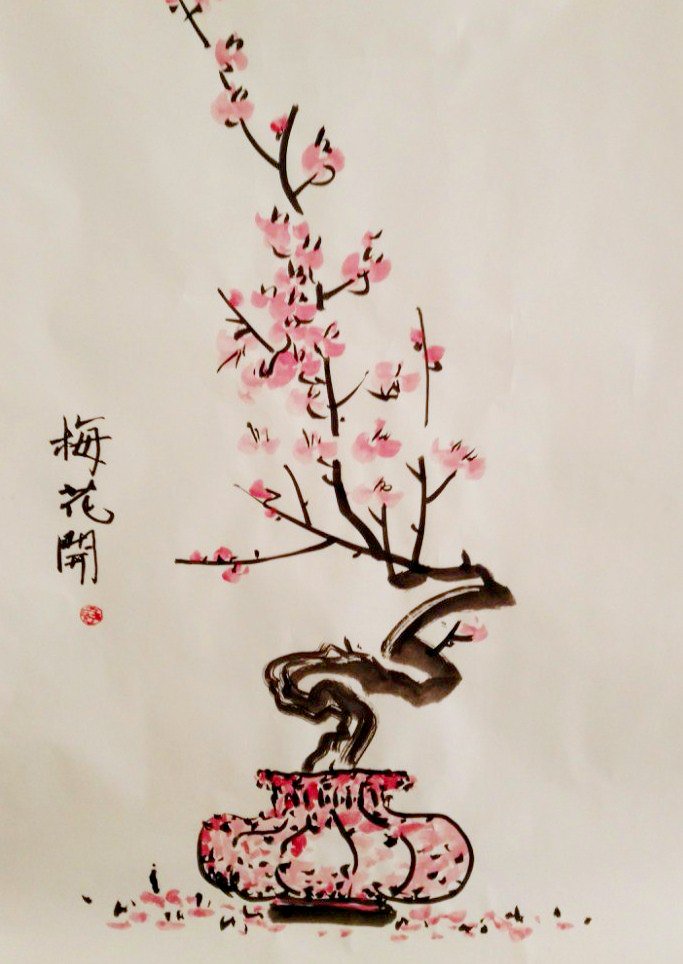 梅花開